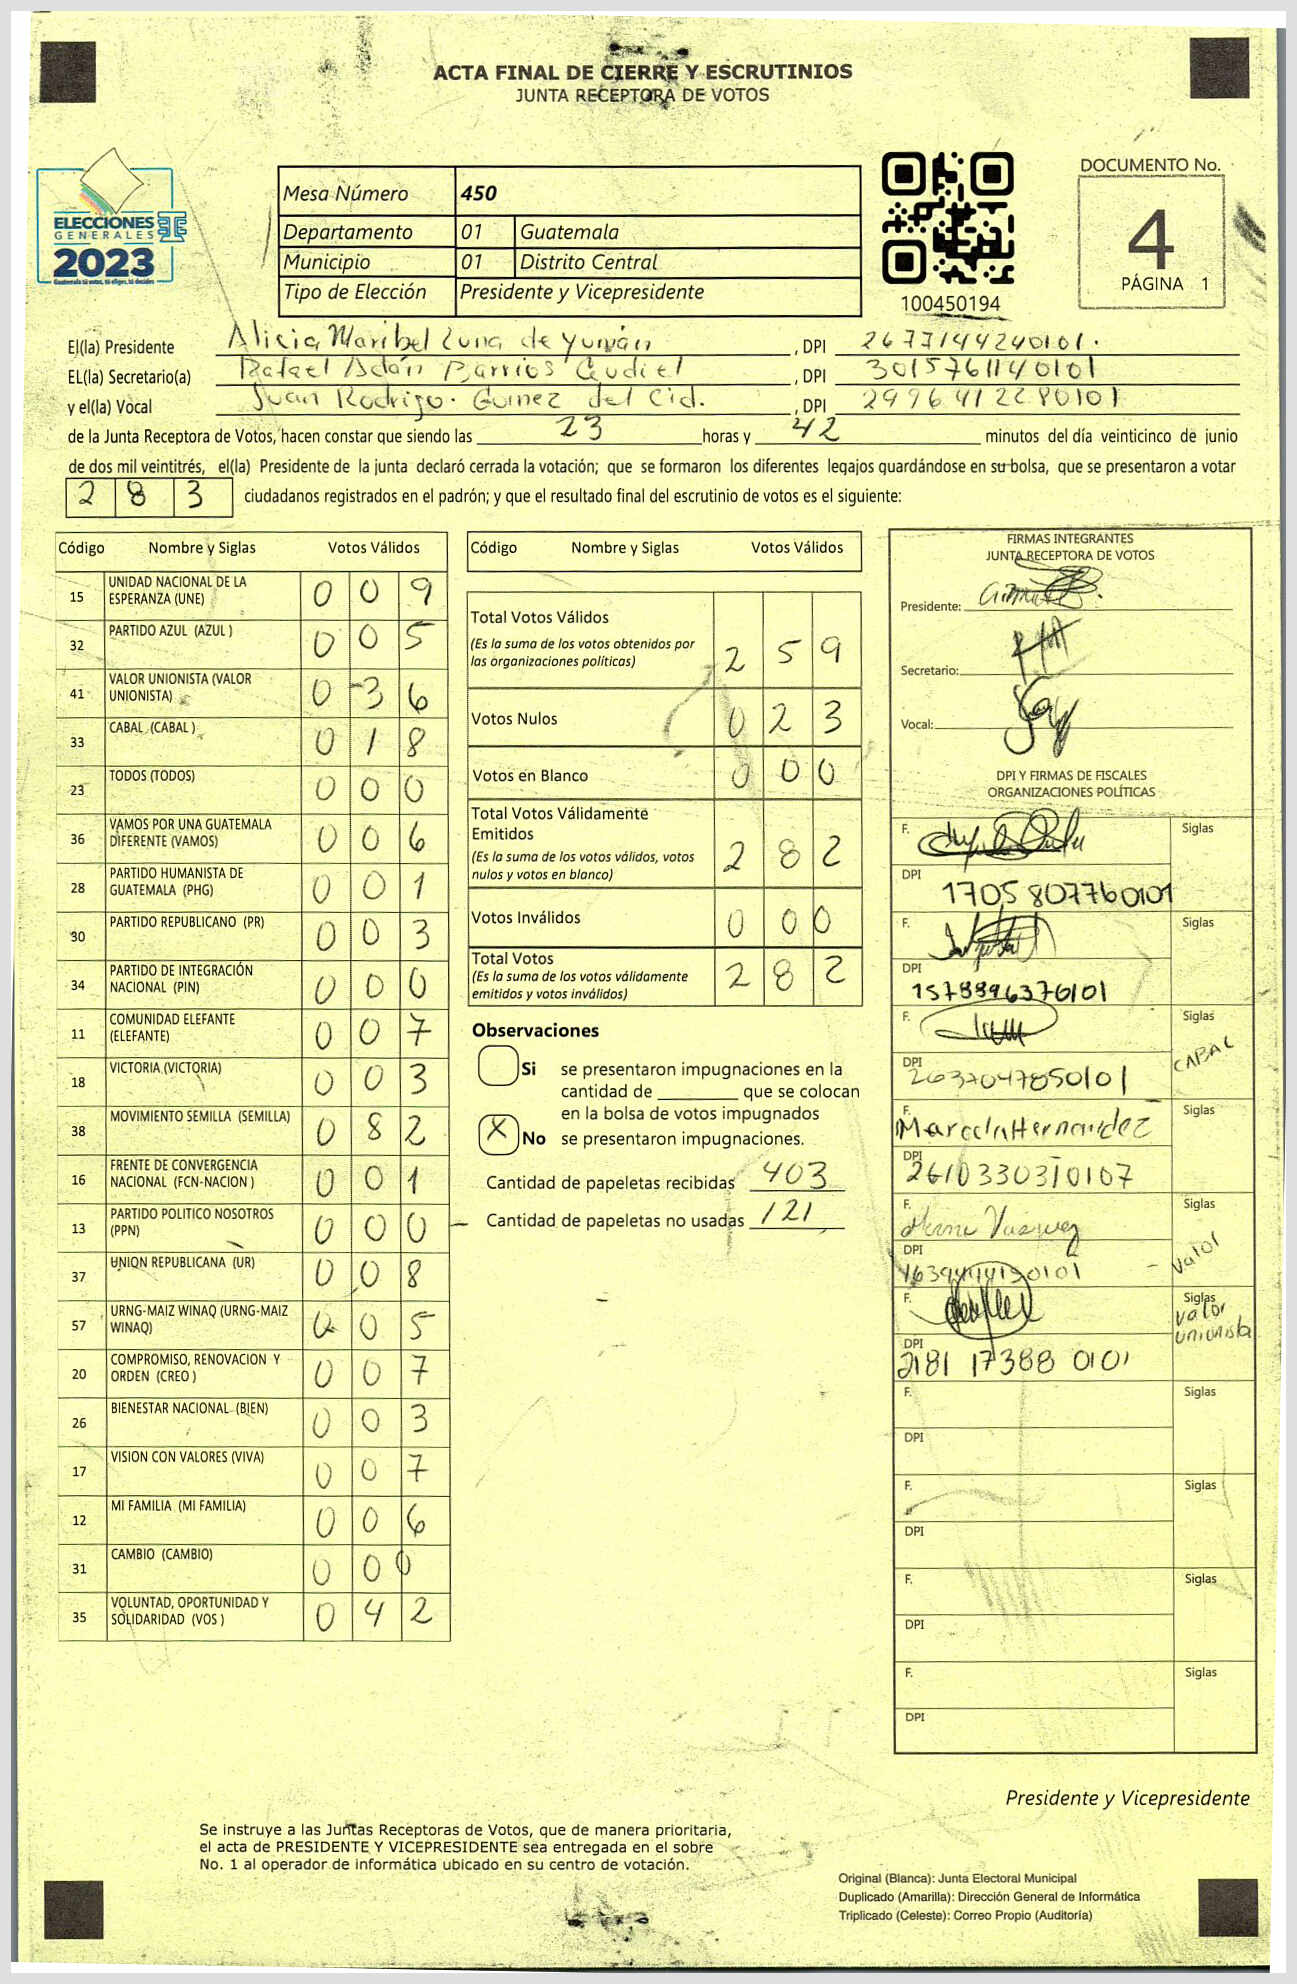 ACTA FINAL DE CIERRE Y ESCRUTINIOS
JUNTA RECEPTORA DE VOTOS
ELECCIONES
GENERALES
2023
Guatemala tú votas, tú eliges, tú decides
Mesa Número 450
Departamento 01 Guatemala
Municipio 01 Distrito Central
Tipo de Elección Presidente y Vicepresidente
100450194
DOCUMENTO No.
4
PÁGINA 1
El(la) Presidente Alicia Maribel Luna de Yumán , DPI 2677144240101.
EL(la) Secretario(a) Rafael Adán Barrios Gudiel , DPI 3015761140101
y el(la) Vocal Juan Rodrigo Gómez del Cid. , DPI 2996412280101
de la Junta Receptora de Votos, hacen constar que siendo las 23 horas y 42 minutos del día veinticinco de junio
de dos mil veintitrés, el(la) Presidente de la junta declaró cerrada la votación; que se formaron los diferentes legajos guardándose en su bolsa, que se presentaron a votar
283 ciudadanos registrados en el padrón; y que el resultado final del escrutinio de votos es el siguiente:
Código Nombre y Siglas Votos Válidos
15 UNIDAD NACIONAL DE LA ESPERANZA (UNE) 0 0 9
32 PARTIDO AZUL (AZUL ) 0 0 5
41 VALOR UNIONISTA (VALOR UNIONISTA) 0 3 6
33 CABAL (CABAL ) 0 1 8
23 TODOS (TODOS) 0 0 0
36 VAMOS POR UNA GUATEMALA DIFERENTE (VAMOS) 0 0 6
28 PARTIDO HUMANISTA DE GUATEMALA (PHG) 0 0 1
30 PARTIDO REPUBLICANO (PR) 0 0 3
34 PARTIDO DE INTEGRACIÓN NACIONAL (PIN) 0 0 0
11 COMUNIDAD ELEFANTE (ELEFANTE) 0 0 7
18 VICTORIA (VICTORIA) 0 0 3
38 MOVIMIENTO SEMILLA (SEMILLA) 0 8 2
16 FRENTE DE CONVERGENCIA NACIONAL (FCN-NACION ) 0 0 1
13 PARTIDO POLITICO NOSOTROS (PPN) 0 0 0
37 UNION REPUBLICANA (UR) 0 0 8
57 URNG-MAIZ WINAQ (URNG-MAIZ WINAQ) 0 0 5
20 COMPROMISO, RENOVACION Y ORDEN (CREO ) 0 0 7
26 BIENESTAR NACIONAL (BIEN) 0 0 3
17 VISION CON VALORES (VIVA) 0 0 7
12 MI FAMILIA (MI FAMILIA) 0 0 6
31 CAMBIO (CAMBIO) 0 0 0
35 VOLUNTAD, OPORTUNIDAD Y SOLIDARIDAD (VOS ) 0 4 2
Código Nombre y Siglas Votos Válidos
Total Votos Válidos 2 5 9
(Es la suma de los votos obtenidos por
las organizaciones políticas)
Votos Nulos 0 2 3
Votos en Blanco 0 0 0
Total Votos Válidamente
Emitidos 2 8 2
(Es la suma de los votos válidos, votos
nulos y votos en blanco)
Votos Inválidos 0 0 0
Total Votos 2 8 2
(Es la suma de los votos válidamente
emitidos y votos inválidos)
Observaciones
Si se presentaron impugnaciones en la
cantidad de ________ que se colocan
en la bolsa de votos impugnados
X No se presentaron impugnaciones.
Cantidad de papeletas recibidas 403
Cantidad de papeletas no usadas 121
FIRMAS INTEGRANTES
JUNTA RECEPTORA DE VOTOS
Presidente:
Secretario:
Vocal:
DPI Y FIRMAS DE FISCALES
ORGANIZACIONES POLÍTICAS
F. Siglas
DPI 1705 807760101
F. Siglas
DPI 1578896376101
F. Siglas CABAL
DPI 2637047850101
F. Marcela Hernandez Siglas
DPI 2610330310107
F. Vasquez Siglas Valor
DPI
F. Siglas Valor unionista
DPI 2181 17388 0101
F. Siglas
DPI
F. Siglas
DPI
F. Siglas
DPI
F. Siglas
DPI
Presidente y Vicepresidente
Se instruye a las Juntas Receptoras de Votos, que de manera prioritaria,
el acta de PRESIDENTE Y VICEPRESIDENTE sea entregada en el sobre
No. 1 al operador de informática ubicado en su centro de votación.
Original (Blanca): Junta Electoral Municipal
Duplicado (Amarilla): Dirección General de Informática
Triplicado (Celeste): Correo Propio (Auditoría)